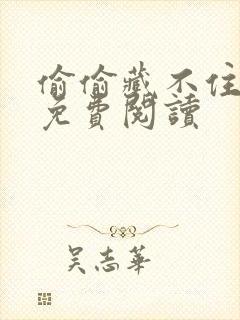 偷偷藏不住
免費閱讀
吳志華